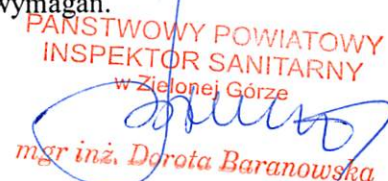 wymagań.
PAŃSTWOWY POWIATOWY
INSPEKTOR SANITARNY
w Zielonej Górze
mgr inż. Dorota Baranowska